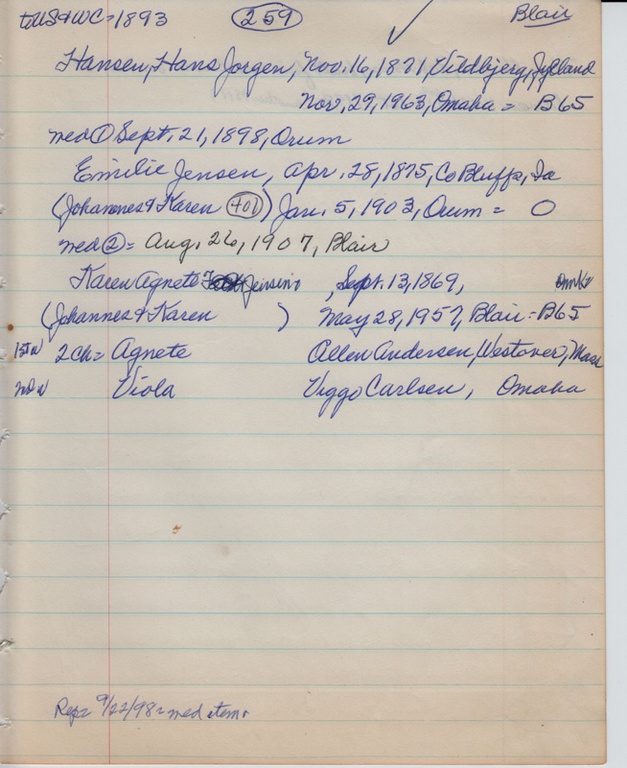 to US & WC = 1893 259 Blair
Hansen, Hans Jorgen, Nov. 16, 1871, Vildbjerg, Jylland
Nov. 29, 1963, Omaha = B65
med ① Sept. 21, 1898, Orum
Emilie Jensen, Apr. 28, 1875, Co Bluffs, Ia
(Johannes & Karen 401) Jan. 5, 1903, Orum = O
med ② = Aug. 26, 1907, Blair
Karen Agnete , Sept. 13, 1869,
(Johannes & Karen ) May 28, 1957, Blair = B65
1st W 2 ch = Agnete Allen Andersen, Westover, Mass
2nd W Viola Viggo Carlsen, Omaha
9/22/98 = med